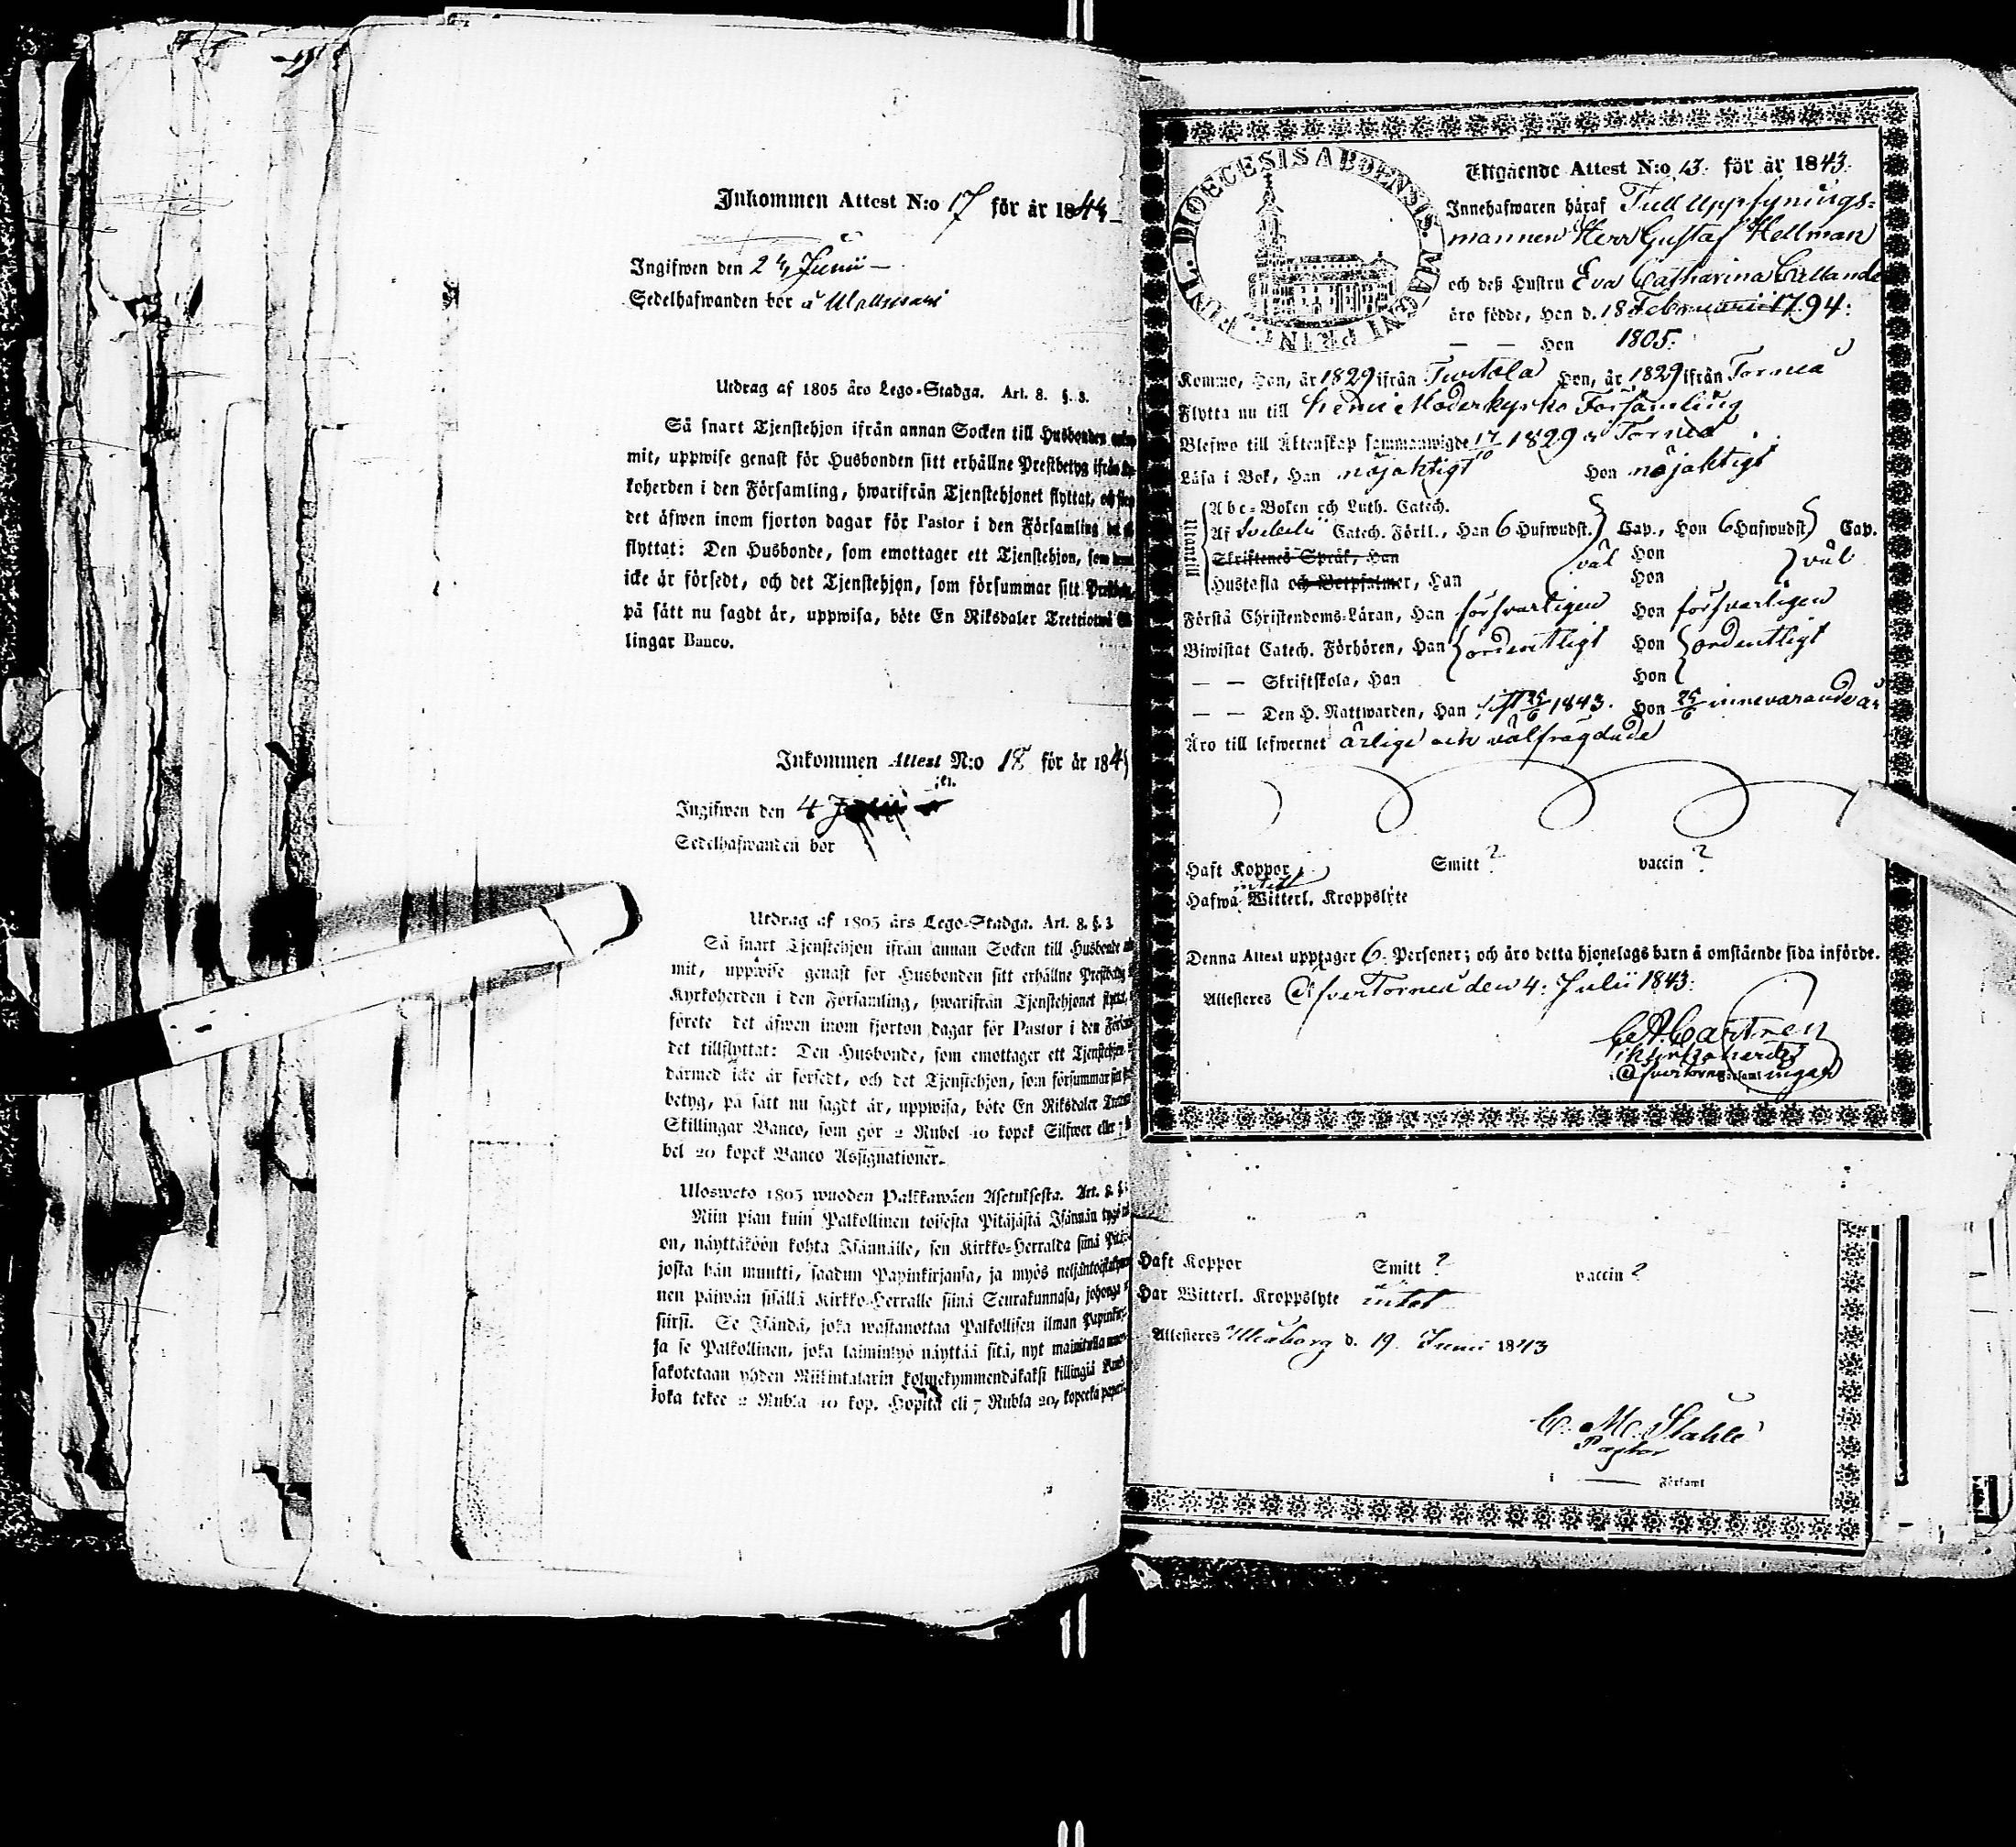 Inkommen Attest N:o 17 för år 1843
Ingifwen den 24 Junii
Sedelhafwanden bor å
Utdrag af 1805 åro Lego-Stadga. Art. 8. §. 3.
Så snart Tjenstehjon ifrån annan Socken till Husbonden
mit, uppwise genast för Husbonden sitt erhållne Prestbetyg ifrån
koherden i den Församling, hwarifrån Tjenstehjonet flyttat,
det äfwen inom fjorton dagar för Pastor i den Församling
flyttat: Den Husbonde, som emottager ett Tjenstehjon,
icke är försedt, och det Tjenstehjon, som försummar sitt
på sätt nu sagdt är, uppwisa, böte En Riksdaler Trettiotwå
lingar Banco.
Inkommen Attest N:o 18 för år 184
Ingifwen den 4
Sedelhafwanden bor
Utdrag af 1805 års Lego-Stadga. Art. 8. §. 3
Så snart Tjenstehjon ifrån annan Socken till Husbonde
mit, uppwise genast för Husbonden sitt erhållne Prestbetyg
Kyrkoherden i den Församling, hwarifrån Tjenstehjonet
förete det äfwen inom fjorton dagar för Pastor i den
det tillflyttat: Den Husbonde, som emottager ett
därmed icke är försedt, och det Tjenstehjon, som försummar
betyg, på sätt nu sagdt är, uppwisa, böte En Riksdaler
Skillingar Banco, som gör 2 Rubel 40 kopek Silfwer eller 7
bel 20 kopek Banco Assignationer.
Ulosweto 1805 wuoden Palkkawäen Asetuksesta. Art. 8. §.
Niin pian kuin Palkollinen toisesta Pitäjästä Isännän tygö
on, näyttäköön kohta Isännälle, sen Kirkko-Herralda siinä
josta hän muutti, saadun Papinkirjansa, ja myös
nen päiwän sisällä Kirkko-Herralle siinä Seurakunnasa, johonga
siirsi. Se Isändä, joka wastanottaa Palkollisen ilman
ja se Palkollinen, joka laiminlyö näyttää sitä, nyt
sakotetaan yhden Riikintalarin kolmekymmendäkaksi killingiä
joka tekee 2 Rubla 40 kop. Hopita eli 7 Rubla 20, kopeekä
FINL. DIOECESIS ABOENSIS. MAGNI PRINC.
Utgående Attest N:o 13. för år 1843.
Innehafwaren häraf Tull Uppsynings-
mannen Herr Gustaf Hellman
och deß Hustru Eva Catharina
äro födde, Han d. 18 Februarii 1794.
— — Hon 1805.
Kommo, Han, år 1829 ifrån Turtola Hon, år 1829 ifrån Torneå
Flytta nu till Kemi Moderkyrko Församling
Blefwo till Äktenskap sammanwigde 17 1829 i Torneå
Läsa i Bok, Han nöjaktigt Hon nöjaktigt
Utantill
Abc-Boken och Luth. Catech.
Af Catech. Förkl., Han 6 Hufwudst. Cap., Hon 6 Hufwudst Cap.
Skriftenes Språk, Han väl Hon väl
Hustafla och Botpsalmer, Han Hon
Förstå Christendoms-Läran, Han försvarligen Hon försvarligen
Biwistat Catech. Förhören, Han ordentligt Hon ordentligt
— — Skriftskola, Han Hon
— — Den H. Nattwarden, Han sist 25/6 1843. Hon 25/6 innevarande år
Äro till lefwernet ärlige och välfrägdade
Haft Koppor Smitt? vaccin?
Hafwa Witterl. Kroppslyte
Denna Attest upptager 6 Personer; och äro detta hjonelags barn å omstående sida införde.
Attesteres ÖfverTorneå den 4: Julii 1843.
Castren
Kyrkoherde
i ÖfverTorneå Församlingar
Haft Koppor Smitt? vaccin?
Har Witterl. Kroppslyte intet
Attesteres Uleåborg d. 19 Junii 1843
C. M. Stahle
Pastor
i — Församl